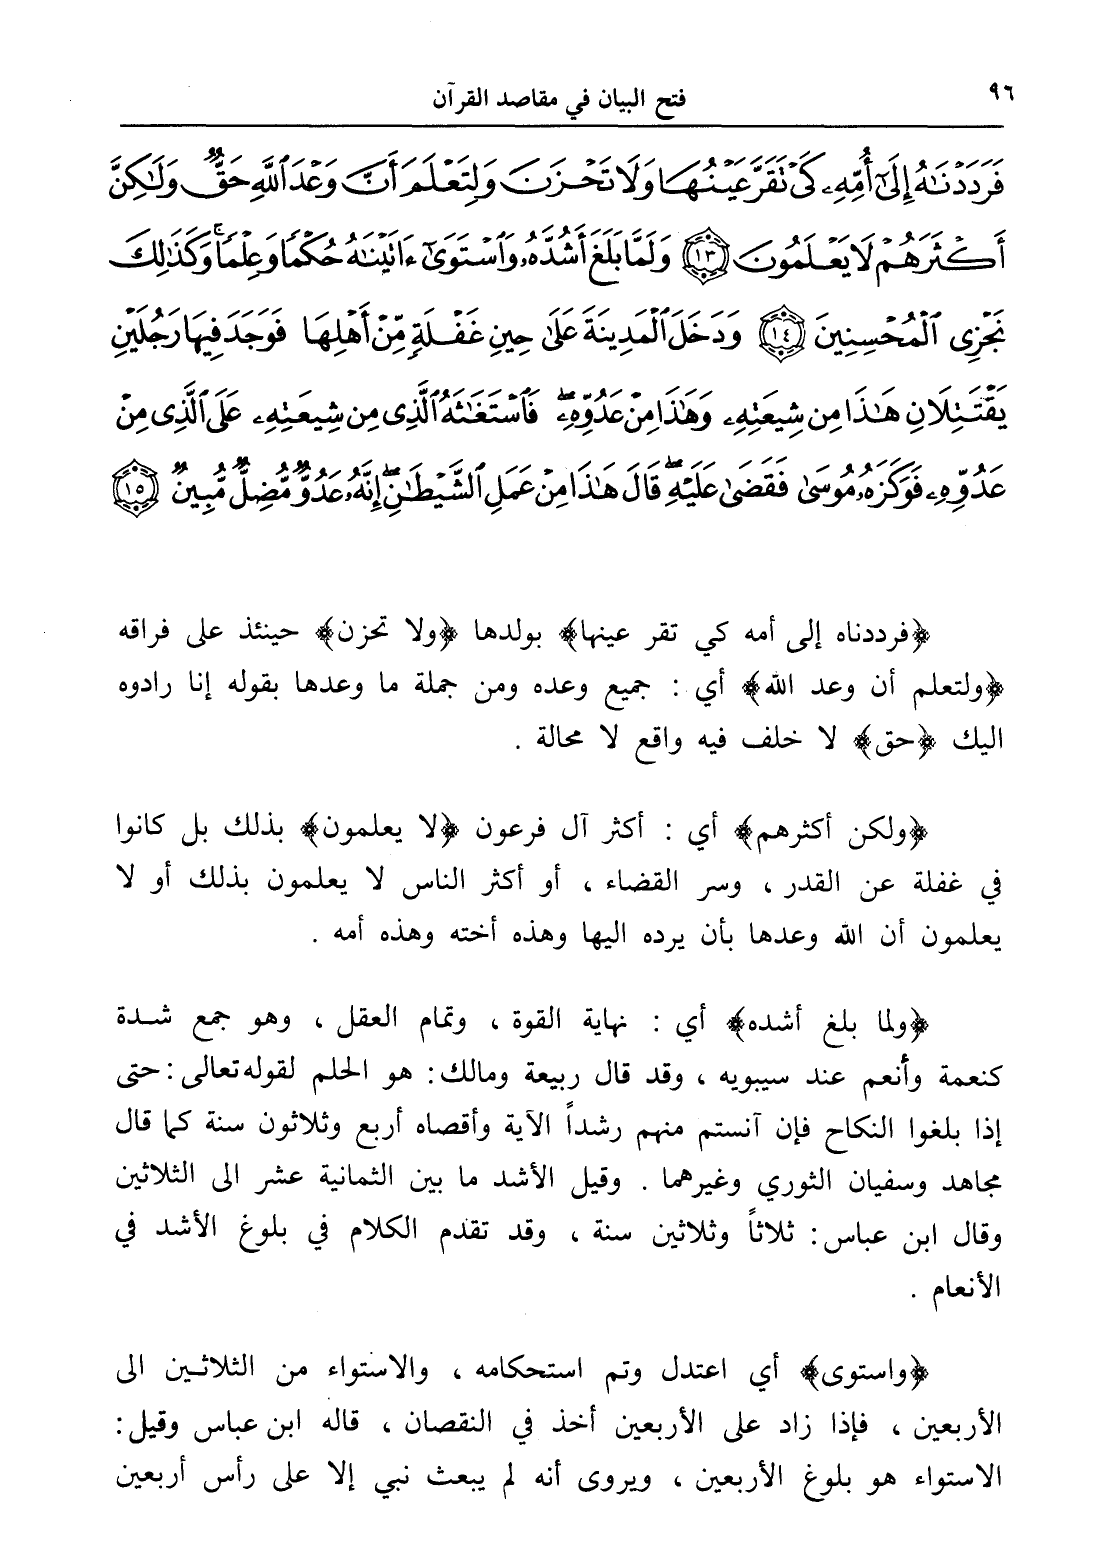 ٩٦
فتح البيان في مقاصد القرآن
فَرَدَدْنَٰهُ إِلَىٰٓ أُمِّهِۦ كَىْ تَقَرَّ عَيْنُهَا وَلَا تَحْزَنَ وَلِتَعْلَمَ أَنَّ وَعْدَ ٱللَّهِ حَقٌّ وَلَٰكِنَّ
أَكْثَرَهُمْ لَا يَعْلَمُونَ ١٣ وَلَمَّا بَلَغَ أَشُدَّهُۥ وَٱسْتَوَىٰٓ ءَاتَيْنَٰهُ حُكْمًا وَعِلْمًا ۚ وَكَذَٰلِكَ
نَجْزِى ٱلْمُحْسِنِينَ ١٤ وَدَخَلَ ٱلْمَدِينَةَ عَلَىٰ حِينِ غَفْلَةٍ مِّنْ أَهْلِهَا فَوَجَدَ فِيهَا رَجُلَيْنِ
يَقْتَتِلَانِ هَٰذَا مِن شِيعَتِهِۦ وَهَٰذَا مِنْ عَدُوِّهِۦ ۖ فَٱسْتَغَٰثَهُ ٱلَّذِى مِن شِيعَتِهِۦ عَلَى ٱلَّذِى مِنْ
عَدُوِّهِۦ فَوَكَزَهُۥ مُوسَىٰ فَقَضَىٰ عَلَيْهِ ۖ قَالَ هَٰذَا مِنْ عَمَلِ ٱلشَّيْطَٰنِ ۖ إِنَّهُۥ عَدُوٌّ مُّضِلٌّ مُّبِينٌ ١٥
﴿فرددناه إلى أمه كي تقر عينها﴾ بولدها ﴿ولا تحزن﴾ حينئذ على فراقه
﴿ولتعلم أن وعد الله﴾ أي : جميع وعده ومن جملة ما وعدها بقوله إنا رادوه
اليك ﴿حق﴾ لا خلف فيه واقع لا محالة .
﴿ولكن أكثرهم﴾ أي : أكثر آل فرعون ﴿لا يعلمون﴾ بذلك بل كانوا
في غفلة عن القدر ، وسر القضاء ، أو أكثر الناس لا يعلمون بذلك أو لا
يعلمون أن الله وعدها بأن يرده اليها وهذه أخته وهذه أمه .
﴿ولما بلغ أشده﴾ أي : نهاية القوة ، وتمام العقل ، وهو جمع شدة
كنعمة وأنعم عند سيبويه ، وقد قال ربيعة ومالك : هو الحلم لقوله تعالى : حتى
إذا بلغوا النكاح فإن آنستم منهم رشداً الآية وأقصاه أربع وثلاثون سنة كما قال
مجاهد وسفيان الثوري وغيرهما . وقيل الأشد ما بين الثمانية عشر الى الثلاثين
وقال ابن عباس : ثلاثاً وثلاثين سنة ، وقد تقدم الكلام في بلوغ الأشد في
الأنعام .
﴿واستوى﴾ أي اعتدل وتم استحكامه ، والاستواء من الثلاثين الى
الأربعين ، فإذا زاد على الأربعين أخذ في النقصان ، قاله ابن عباس وقيل :
الاستواء هو بلوغ الأربعين ، ويروى أنه لم يبعث نبي إلا على رأس أربعين